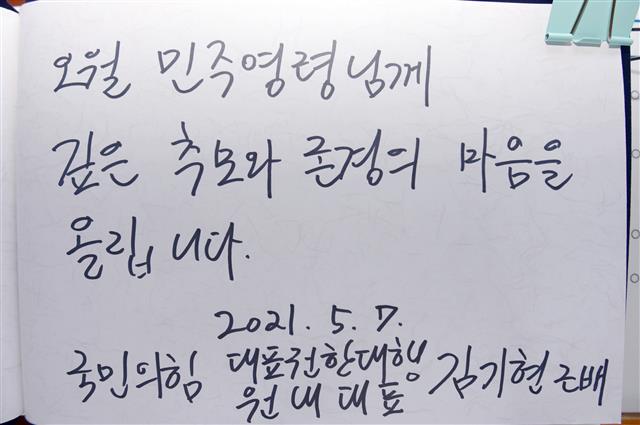 오월 민주영령님께
깊은 추모와 존경의 마음을
올립니다.
2021. 5. 7.
국민의힘 대표권한대행 원내대표 김기현 근배